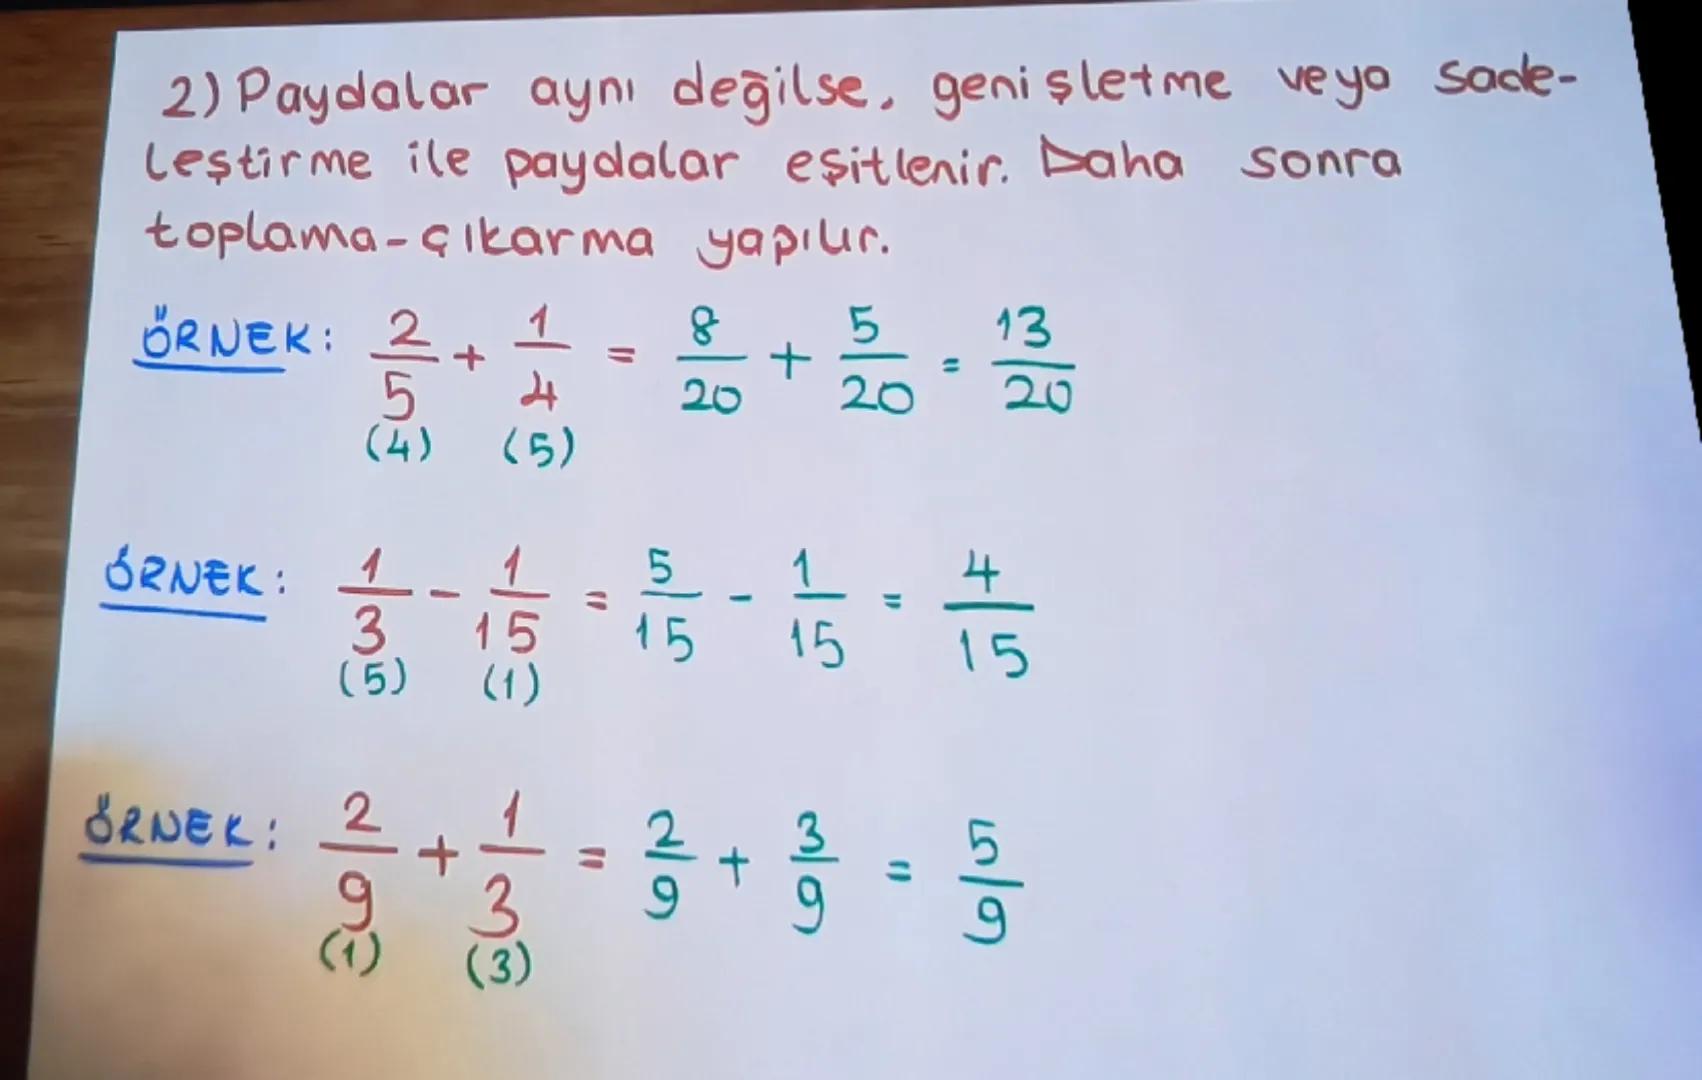 2) Paydalar aynı değilse, genişletme veya sade-
leştirme ile paydalar eşitlenir. Daha sonra
toplama-çıkarma yapılır.
ÖRNEK: 2/5 + 1/4 = 8/20 + 5/20 = 13/20
(4) (5)
ÖRNEK: 1/3 - 1/15 = 5/15 - 1/15 = 4/15
(5) (1)
ÖRNEK: 2/9 + 1/3 = 2/9 + 3/9 = 5/9
(1) (3)